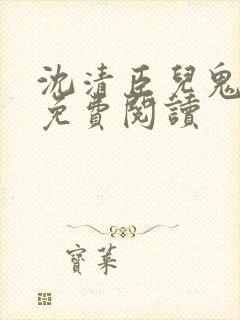 沈清臣兒鬼
免費閱讀
寶葉